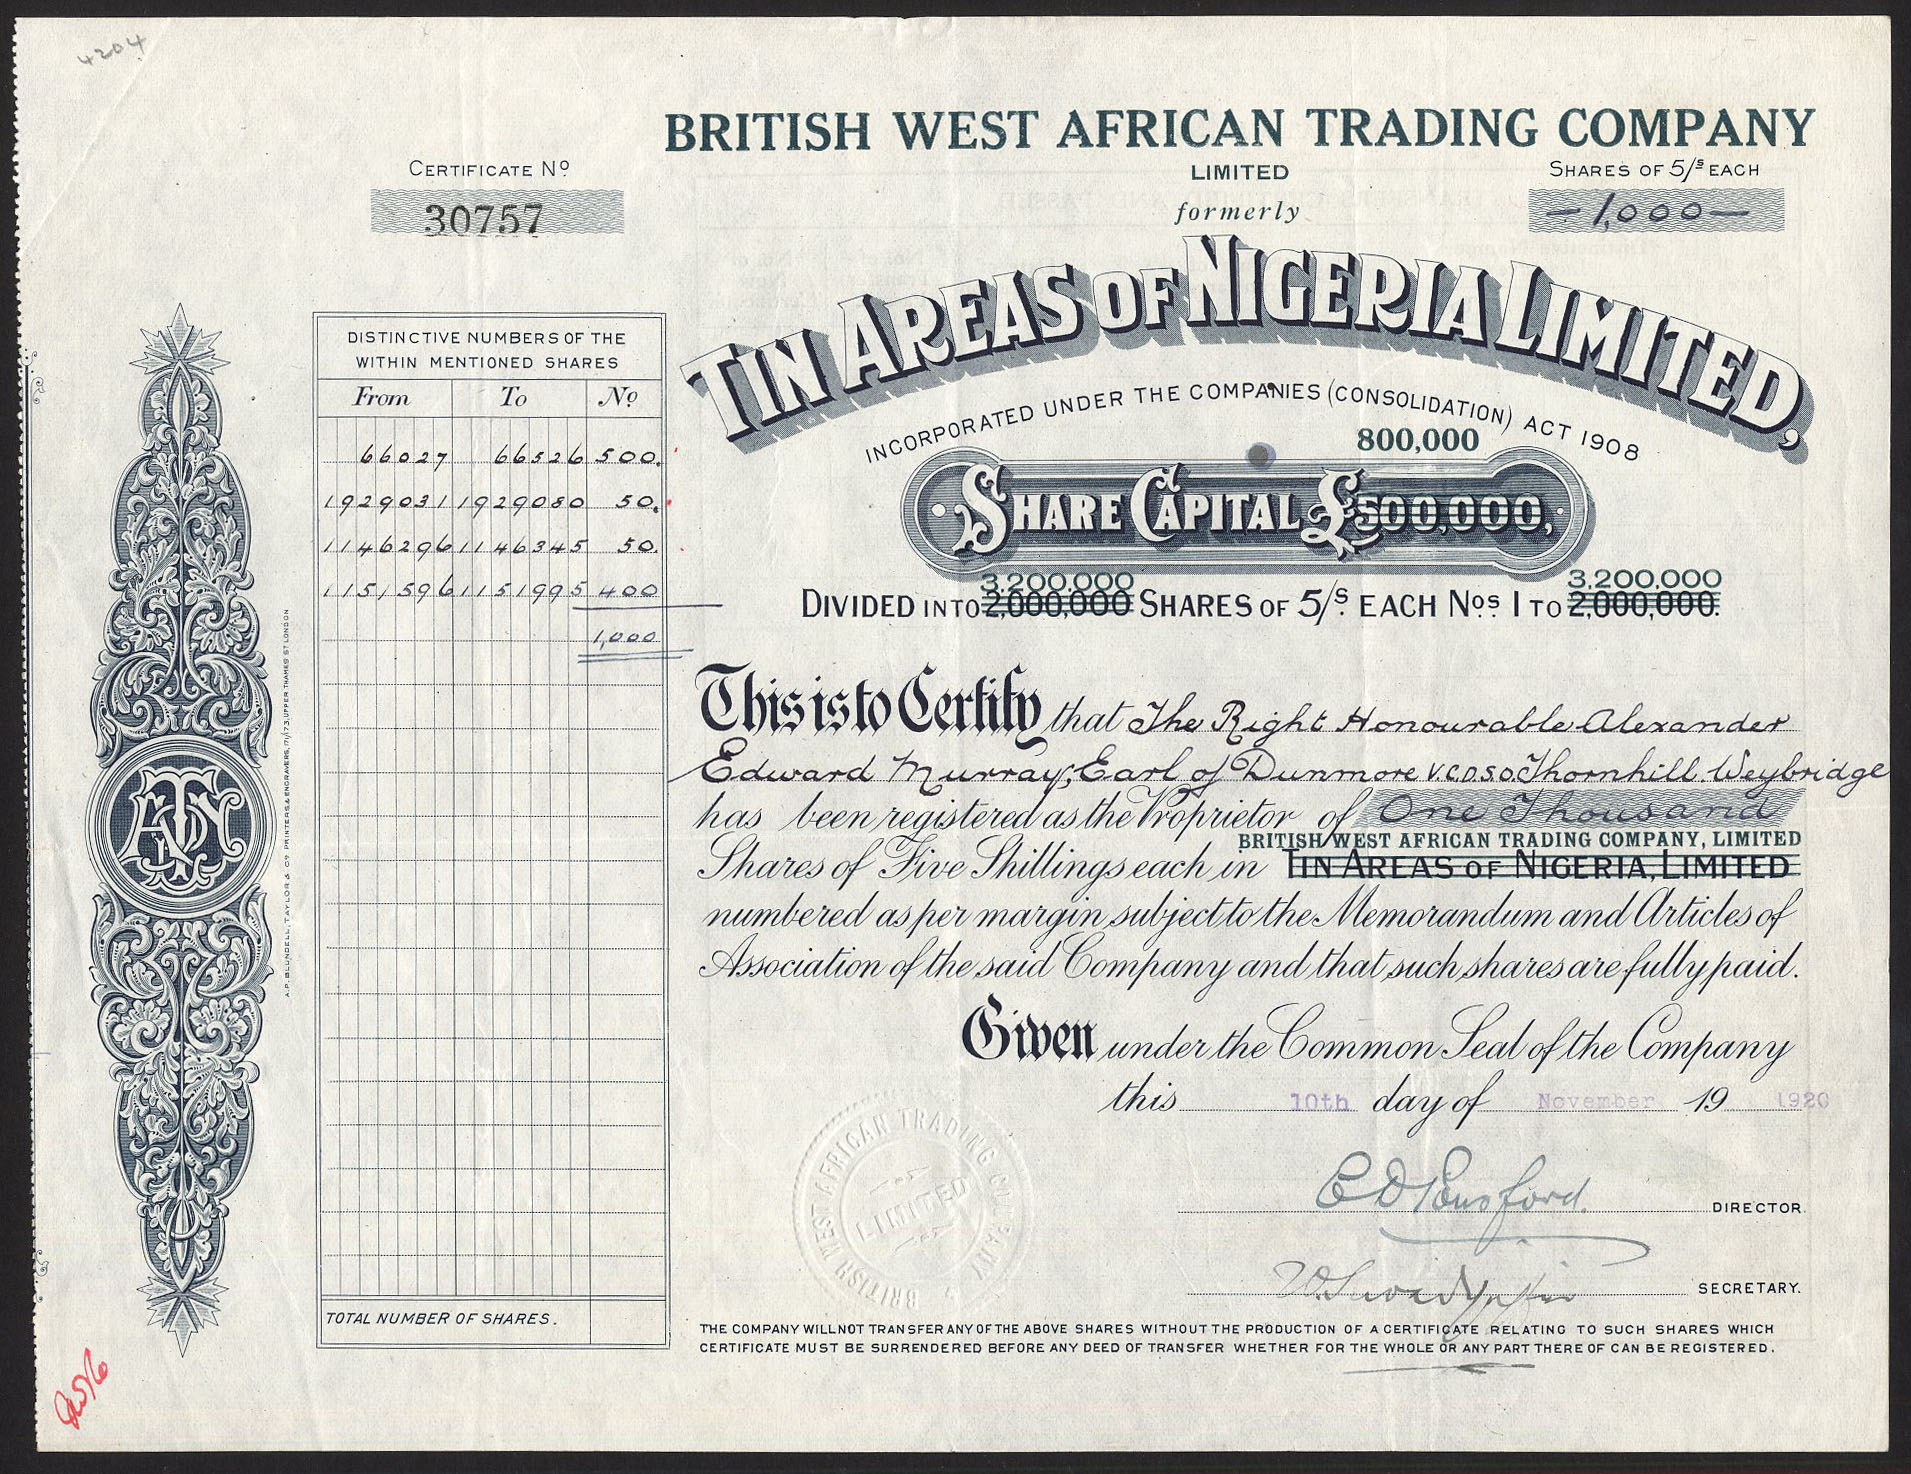 4204
BRITISH WEST AFRICAN TRADING COMPANY
LIMITED
formerly
CERTIFICATE Nº
30757
SHARES OF 5/s EACH
—1,000—
TIN AREAS OF NIGERIA LIMITED,
INCORPORATED UNDER THE COMPANIES (CONSOLIDATION) ACT 1908
800,000
SHARE CAPITAL £500,000,
3,200,000 3,200,000
DIVIDED INTO 2,000,000 SHARES OF 5/s. EACH Nos. 1 TO 2,000,000.
DISTINCTIVE NUMBERS OF THE
WITHIN MENTIONED SHARES
From To Nº
66027 66526 500.
1929031 1929080 50.
1146296 1146345 50.
1151596 1151995 400
1,000
TOTAL NUMBER OF SHARES.
A.P. BLUNDELL, TAYLOR & Cº PRINTERS & ENGRAVERS, 171/173, UPPER THAMES ST LONDON
This is to Certify that The Right Honourable Alexander
Edward Murray, Earl of Dunmore V.C. D.S.O. Thornhill Weybridge
has been registered as the Proprietor of One Thousand
BRITISH WEST AFRICAN TRADING COMPANY, LIMITED
Shares of Five Shillings each in TIN AREAS OF NIGERIA, LIMITED
numbered as per margin subject to the Memorandum and Articles of
Association of the said Company and that such shares are fully paid.
Given under the Common Seal of the Company
this 10th day of November 19 1920
DIRECTOR.
SECRETARY.
BRITISH WEST AFRICAN TRADING COMPANY
LIMITED
THE COMPANY WILL NOT TRANSFER ANY OF THE ABOVE SHARES WITHOUT THE PRODUCTION OF A CERTIFICATE RELATING TO SUCH SHARES WHICH
CERTIFICATE MUST BE SURRENDERED BEFORE ANY DEED OF TRANSFER WHETHER FOR THE WHOLE OR ANY PART THERE OF CAN BE REGISTERED.